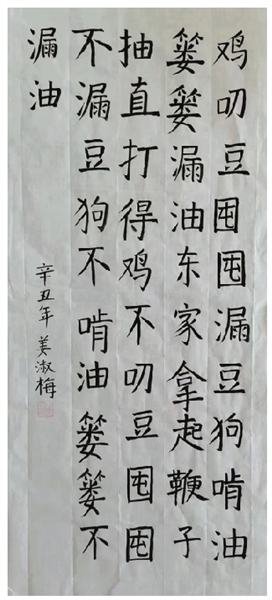 鸡叨豆囤囤漏豆狗啃油
篓篓漏油东家拿起鞭子
抽直打得鸡不叨豆囤囤
不漏豆狗不啃油篓篓不
漏油
辛丑年姜淑梅